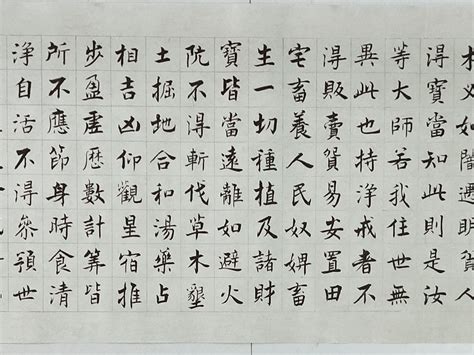 木叉如闇遇明貧人
得寶當知此則是汝
等大師若我住世無
異此也持淨戒者不
得販賣貿易安置田
宅畜養人民奴婢畜
生一切種植及諸財
寶皆當遠離如避火
阬不得斬伐草木墾
土掘地合和湯藥占
相吉凶仰觀星宿推
步盈虛歷數計筭皆
所不應節身時食清
淨自活不得叅預世